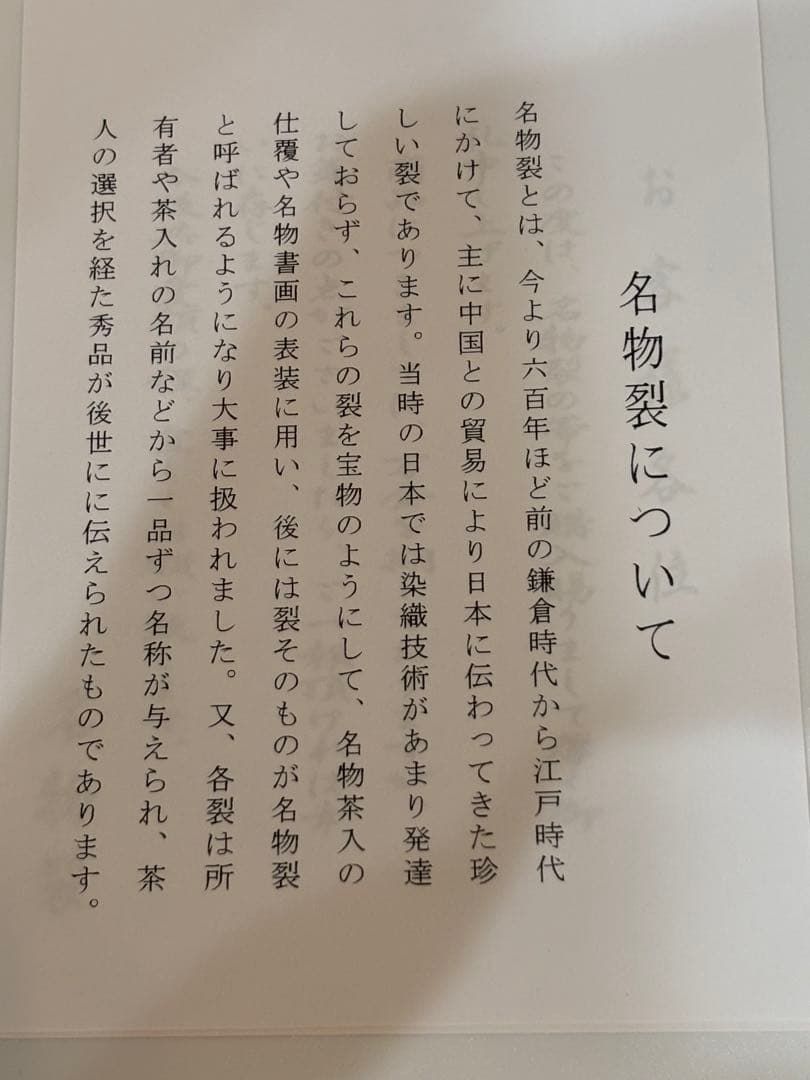 名物裂について
名物裂とは、今より六百年ほど前の鎌倉時代から江戸時代
にかけて、主に中国との貿易により日本に伝わってきた珍
しい裂であります。当時の日本では染織技術があまり発達
しておらず、これらの裂を宝物のようにして、名物茶入の
仕覆や名物書画の表装に用い、後には裂そのものが名物裂
と呼ばれるようになり大事に扱われました。又、各裂は所
有者や茶入れの名前などから一品ずつ名称が与えられ、茶
人の選択を経た秀品が後世にに伝えられたものであります。